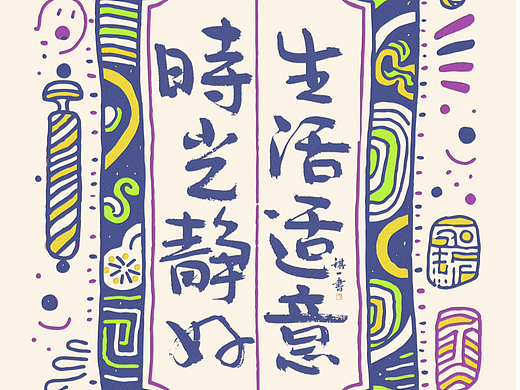 生活适意
時光静好
棋一書